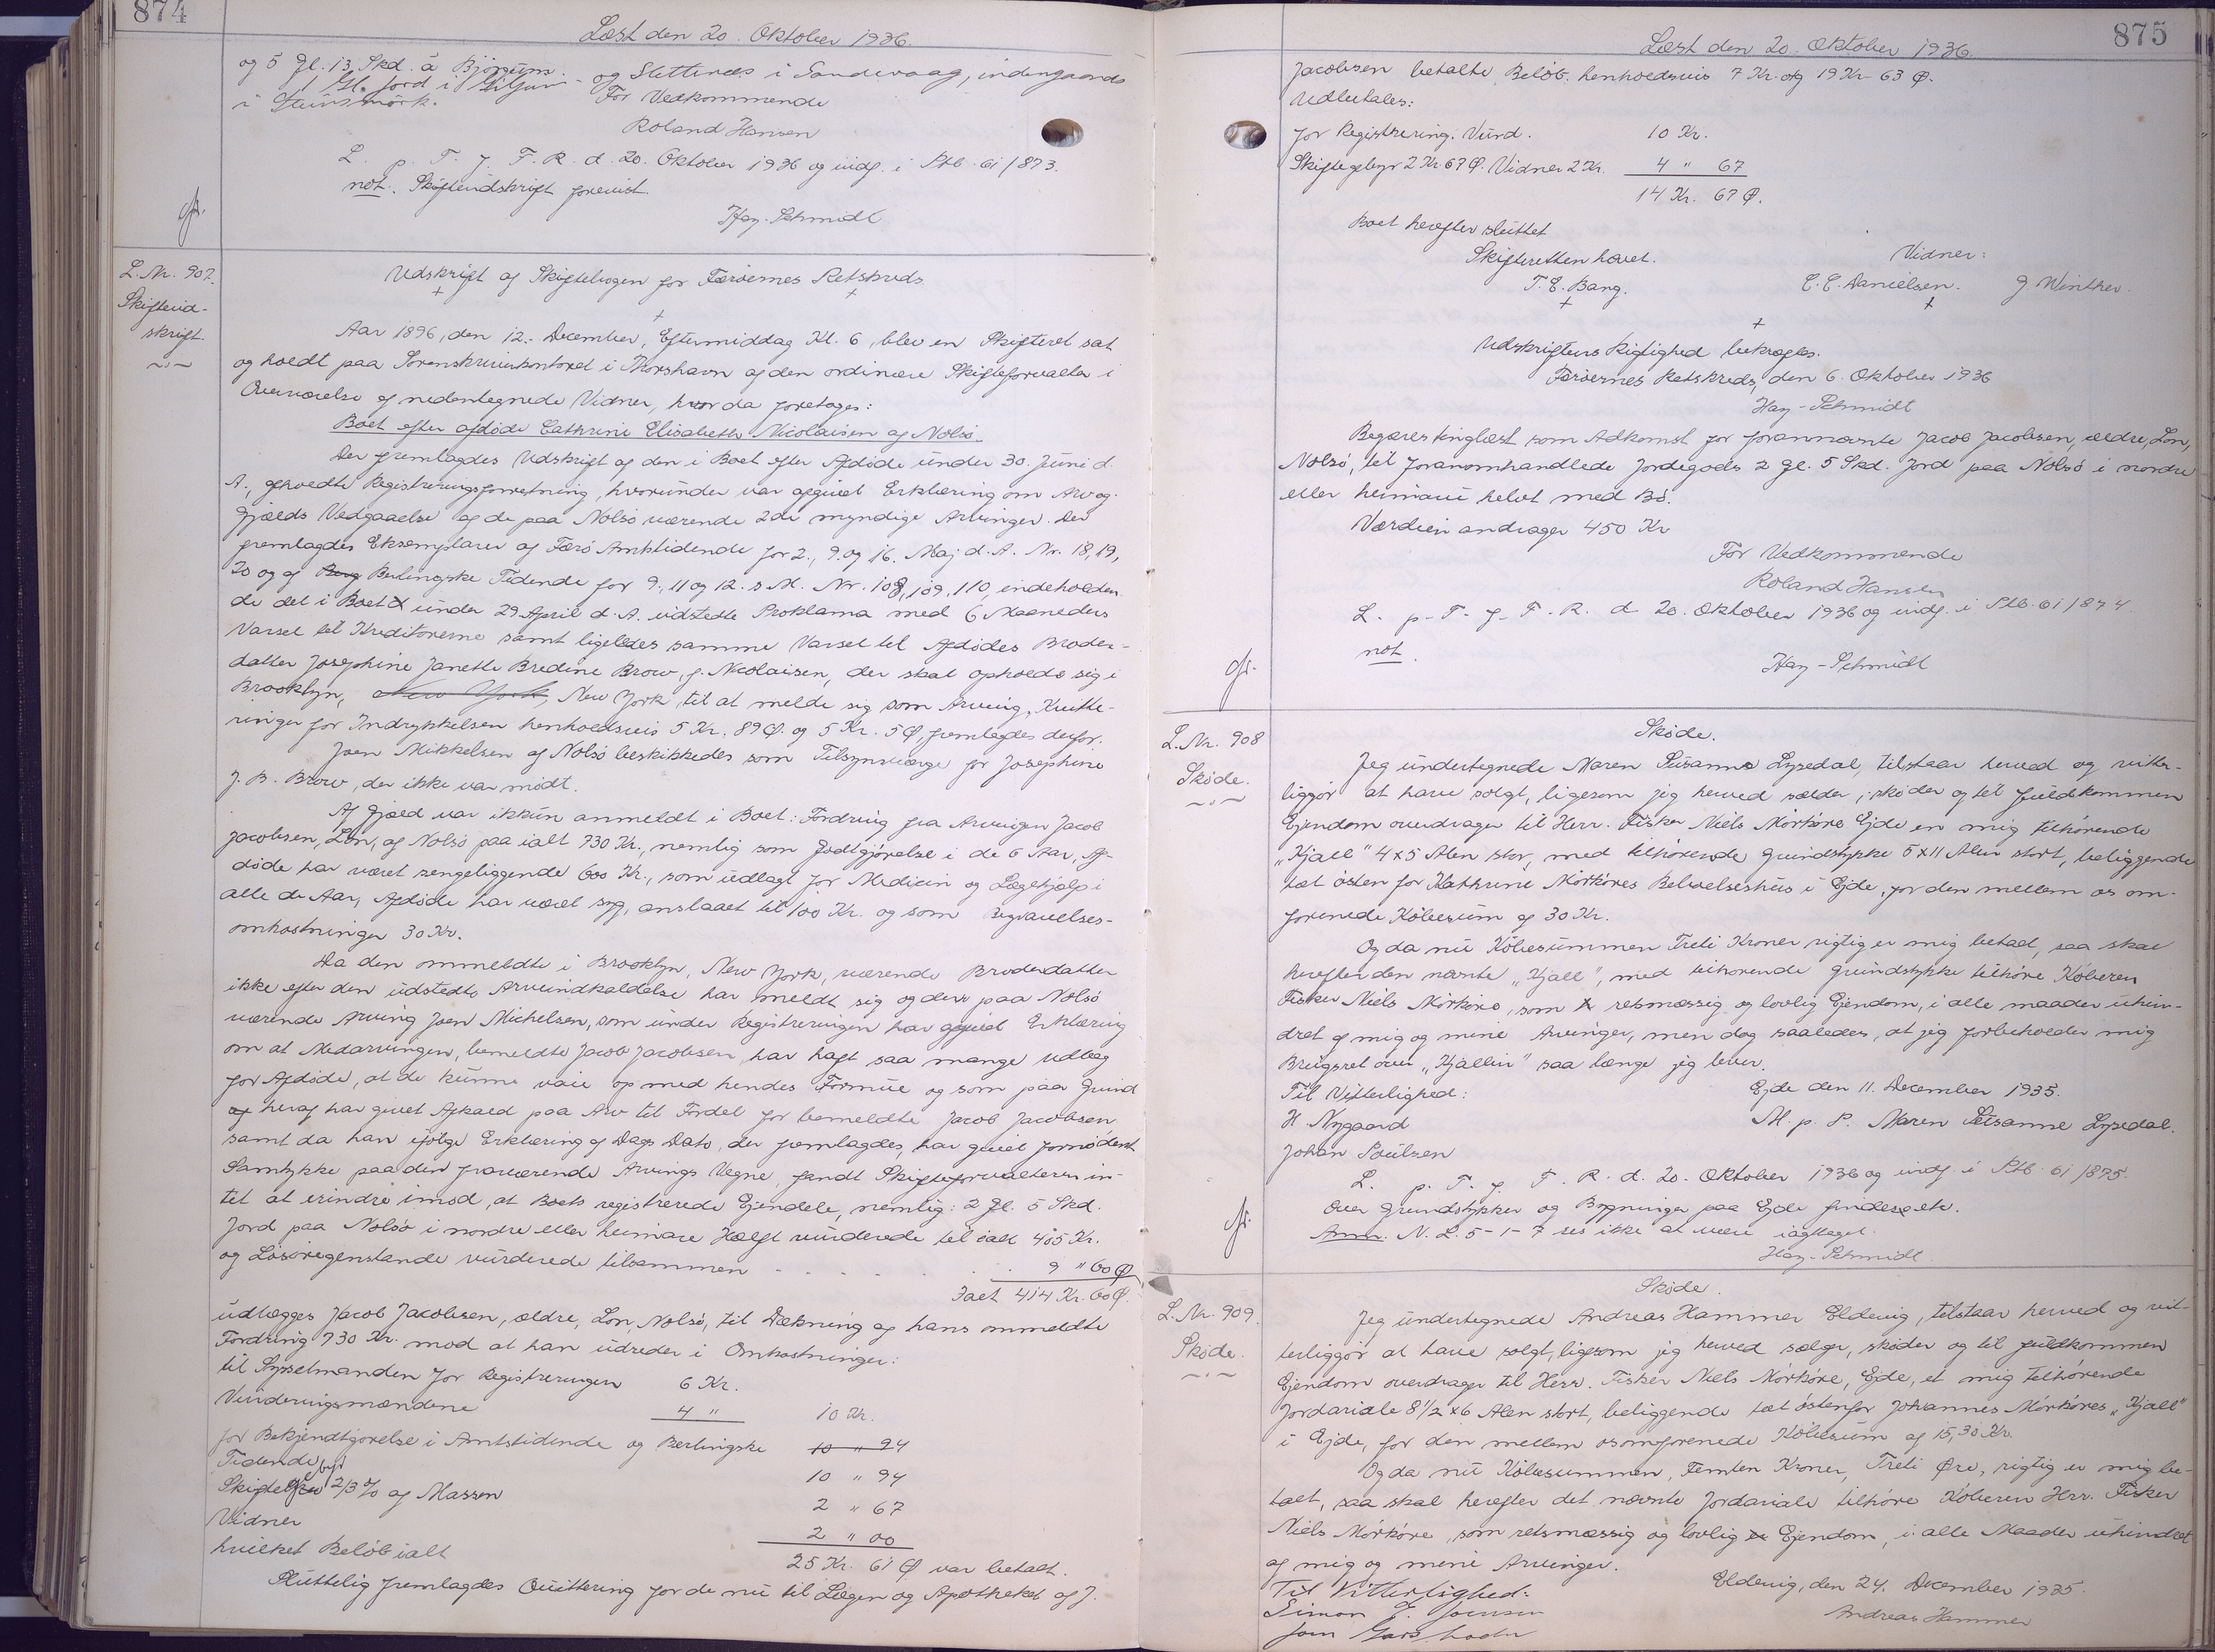 874
Læst den 20. Oktober 1936.
og 5 Gl. 13 Skd. á Bjørgum og Slettenes i Sandevaag, indengaards
1 Gl. Jord i
i Steinsmörk.
For Vedkommende
Roland Hansen
L. p. T. f. F. R. d. 20. Oktober 1936 og indf. i Ptb. 61/873.
not. Skifteudskrift forevist.
Hay-Schmidt
L. Nr. 907.
Skifteud-
skrift.
Udskrift af Skiftebogen for Færøernes Retskreds
Aar 1896, den 12. December, Eftermiddag Kl. 6, blev en Skifteret sat
og holdt paa Sorenskriverkontoret i Thorshavn af den ordinære Skifteforvalter i
Overværelse af nedentegnede Vidner, hvor da foretoges:
Boet efter afdøde Cathrine Elisabeth Nicolaisen af Nolsø.
Der fremlagdes Udskrift af den i Boet efter Afdøde under 30. Juni d.
A., afholdte Registreringsforretning, hvorunder var afgivet Erklæring om Arv og
Gjælds Vedgaaelse af de paa Nolsø værende 2de myndige Arvinger. Der
fremlagdes Eksemplarer af Færø Amtstidende for 2., 9. og 16. Maj d. A. Nr. 18, 19,
20 og af Berlingske Tidende for 9., 11 og 12. s. M. Nr. 108, 109, 110, indeholden-
de det i Boet under 29 April d. A. udstedte Proklama med 6 Maaneders
Varsel til Kreditorerne samt ligeledes samme Varsel til Afdødes Broder-
datter Josephine Janette Bredine Brow, f. Nicolaisen, der skal opholde sig i
Brooklyn, New York, New York, til at melde sig som Arving. Kvitte-
ringer for Indrykkelsen henholdsvis 5 Kr. 89 Ø. og 5 Kr. 5 Ø, fremlagdes derfor.
Joen Mikkelsen af Nolsø beskikkedes som Tilsynsværge for Josephine
J. B. Brow, der ikke var mødt.
Af Gjæld var ikkun anmeldt i Boet: Fordring fra Arvingen Jacob
Jacobsen, Lon, af Nolsø paa ialt 730 Kr., nemlig som Godtgjørelse i de 6 Aar, Af-
døde har været sengeliggende 600 Kr., som udlagt for Medicin og Lægehjælp i
alle de Aar, Afdøde har været syg, anslaaet til 100 Kr. og som Begravelses-
omkostninger 30 Kr.
Da den ommeldte i Brooklyn, New York, værende Broderdatter
ikke efter den udstedte Arveindkaldelse har meldt sig og den paa Nolsø
værende Arving Joen Michelsen, som under Registreringen har afgivet Erklæring
om at Medarvingen, bemeldte Jacob Jacobsen, har haft saa mange Udlæg
for Afdøde, at de kunne veie op med hendes Formue og som paa Grund
af heraf har givet Afkald paa Arv til Fordel for bemeldte Jacob Jacobsen
samt da han ifølge Erklæring af Dags Dato, der fremlagdes, har givet fornødent
Samtykke paa den fraværende Arvings Vegne, fandt Skifteforvalteren in-
tet at erindre imod, at Boets registrerede Ejendele, nemlig: 2 Gl. 5 Skd.
Jord paa Nolsø i nordre eller heimare Hælft vurderede til ialt 405 Kr.
og Løsøregenstande vurderede tilsammen 9 " 60 Ø
Facit 414 Kr. 60 Ø.
udlægges Jacob Jacobsen, ældre, Lon, Nolsø, til Dækning af hans ommeldte
Fordring 730 Kr. mod at han udreder i Omkostninger:
til Sysselmanden for Registreringen 6 Kr.
Vurderingsmændene 4 " 10 Kr.
for Bekjendtgørelse i Amtstidende og Berlingske 10 " 94
Tidende 10 " 94
Skiftegebyr 2/3 % af Massen 2 " 67
Vidner 2 " 00
hvilket Beløb ialt 25 Kr. 61 Ø var betalt.
Sluttelig fremlagdes Quittering for de nu til Lægen og Apotheket af J.
875
Læst den 20. Oktober 1936.
Jacobsen betalte Beløb henholdsvis 7 Kr. og 19 Kr. 63 Ø.
Udbetales:
for Registrering. Vurd. 10 Kr.
Skiftegebyr 2 Kr. 67 Ø. Vidner 2 Kr. 4 " 67
14 Kr. 67 Ø.
Boet herefter sluttet
Skifteretten hævet.
T. E. Bang.
Vidner:
E. E. Danielsen. J. Winther.
Udskriftens Rigtighed bekræftes.
Færøernes Retskreds, den 6. Oktober 1936
Hay-Schmidt
Begæres tinglæst som Adkomst for forannævnte Jacob Jacobsen, ældre, Lon,
Nolsø, til foranomhandlede Jordegods 2 Gl. 5 Skd. Jord paa Nolsø i nordre
eller heimaru helvt med Bø.
Værdien andrager 450 Kr
For Vedkommende
Roland Hansen
L. p. T. f. F. R. d. 20. Oktober 1936 og indf. i Ptb. 61/874.
not.
Hay-Schmidt
L. Nr. 908
Skøde.
Skøde.
Jeg undertegnede Maren Susanna Lysedal, tilstaar herved og vitter-
liggör at have solgt, ligesom jeg herved sælder, skøder og til fuldkommen
Ejendom overdrager til Herr. Fisker Niels Mörköre Ejde en mig tilhörende
"Kjall" 4 x 5 Alen stor, med tilhörende Grundstykke 5 x 11 Alen stort, beliggende
tæt østen for Kathrine Mörköres Beboelseshus i Ejde, for den mellem os om-
forenede Købesum af 30 Kr.
Og da nu Købesummen Treti Kroner rigtig er mig betalt, saa skal
herefter den nævnte "Kjall", med tilhorende Grundstykke tilhøre Køberen
Fisker Niels Mörköre, som retsmæssig og lovlig Ejendom, i alle maader uhin-
dret af mig og mine Arvinger, men dog saaledes, at jeg forbeholder mig
Brugsret over "Kjallin" saa længe jeg lever.
Til Vitterlighed:
Ejde den 11. December 1935.
H. Nygaard
M. p. P. Maren Susanne Lysedal.
Johan Poulsen
L. p. T. f. F. R. d. 20. Oktober 1936 og indf. i Ptb. 61/875.
Over Grundstykker og Bygninger paa Ejde findes etc.
Anm. N. L. 5-1-7 ses ikke at være iagttaget.
Hay-Schmidt.
L. Nr. 909.
Skøde.
Skøde.
Jeg undertegnede Andreas Hammer Eldevig, tilstaar herved og vit-
terliggör at have solgt, ligesom jeg herved sælger, skøder og til fuldkommen
Ejendom overdrager til Herr. Fisker Niels Mörköre, Ejde, et mig tilhörende
Jordariale 8 1/2 x 6 Alen stort, beliggende tæt østenfor Johannes Mörköres "Kjall"
i Ejde, for den mellem os omforenede Købesum af 15,30 Kr.
Og da nu Købesummen, Femten Kroner, Treti Øre, rigtig er mig be-
talt, saa skal herefter det nævnte Jordariale tilhöre Köberen Herr. Fisker
Niels Mörköre, som retsmæssig og lovlig Ejendom, i alle Maader uhindret
af mig og mine Arvinger.
Til Vitterlighed:
Eldevig, den 24. December 1935.
Simon J. Joensen
Andreas Hammer